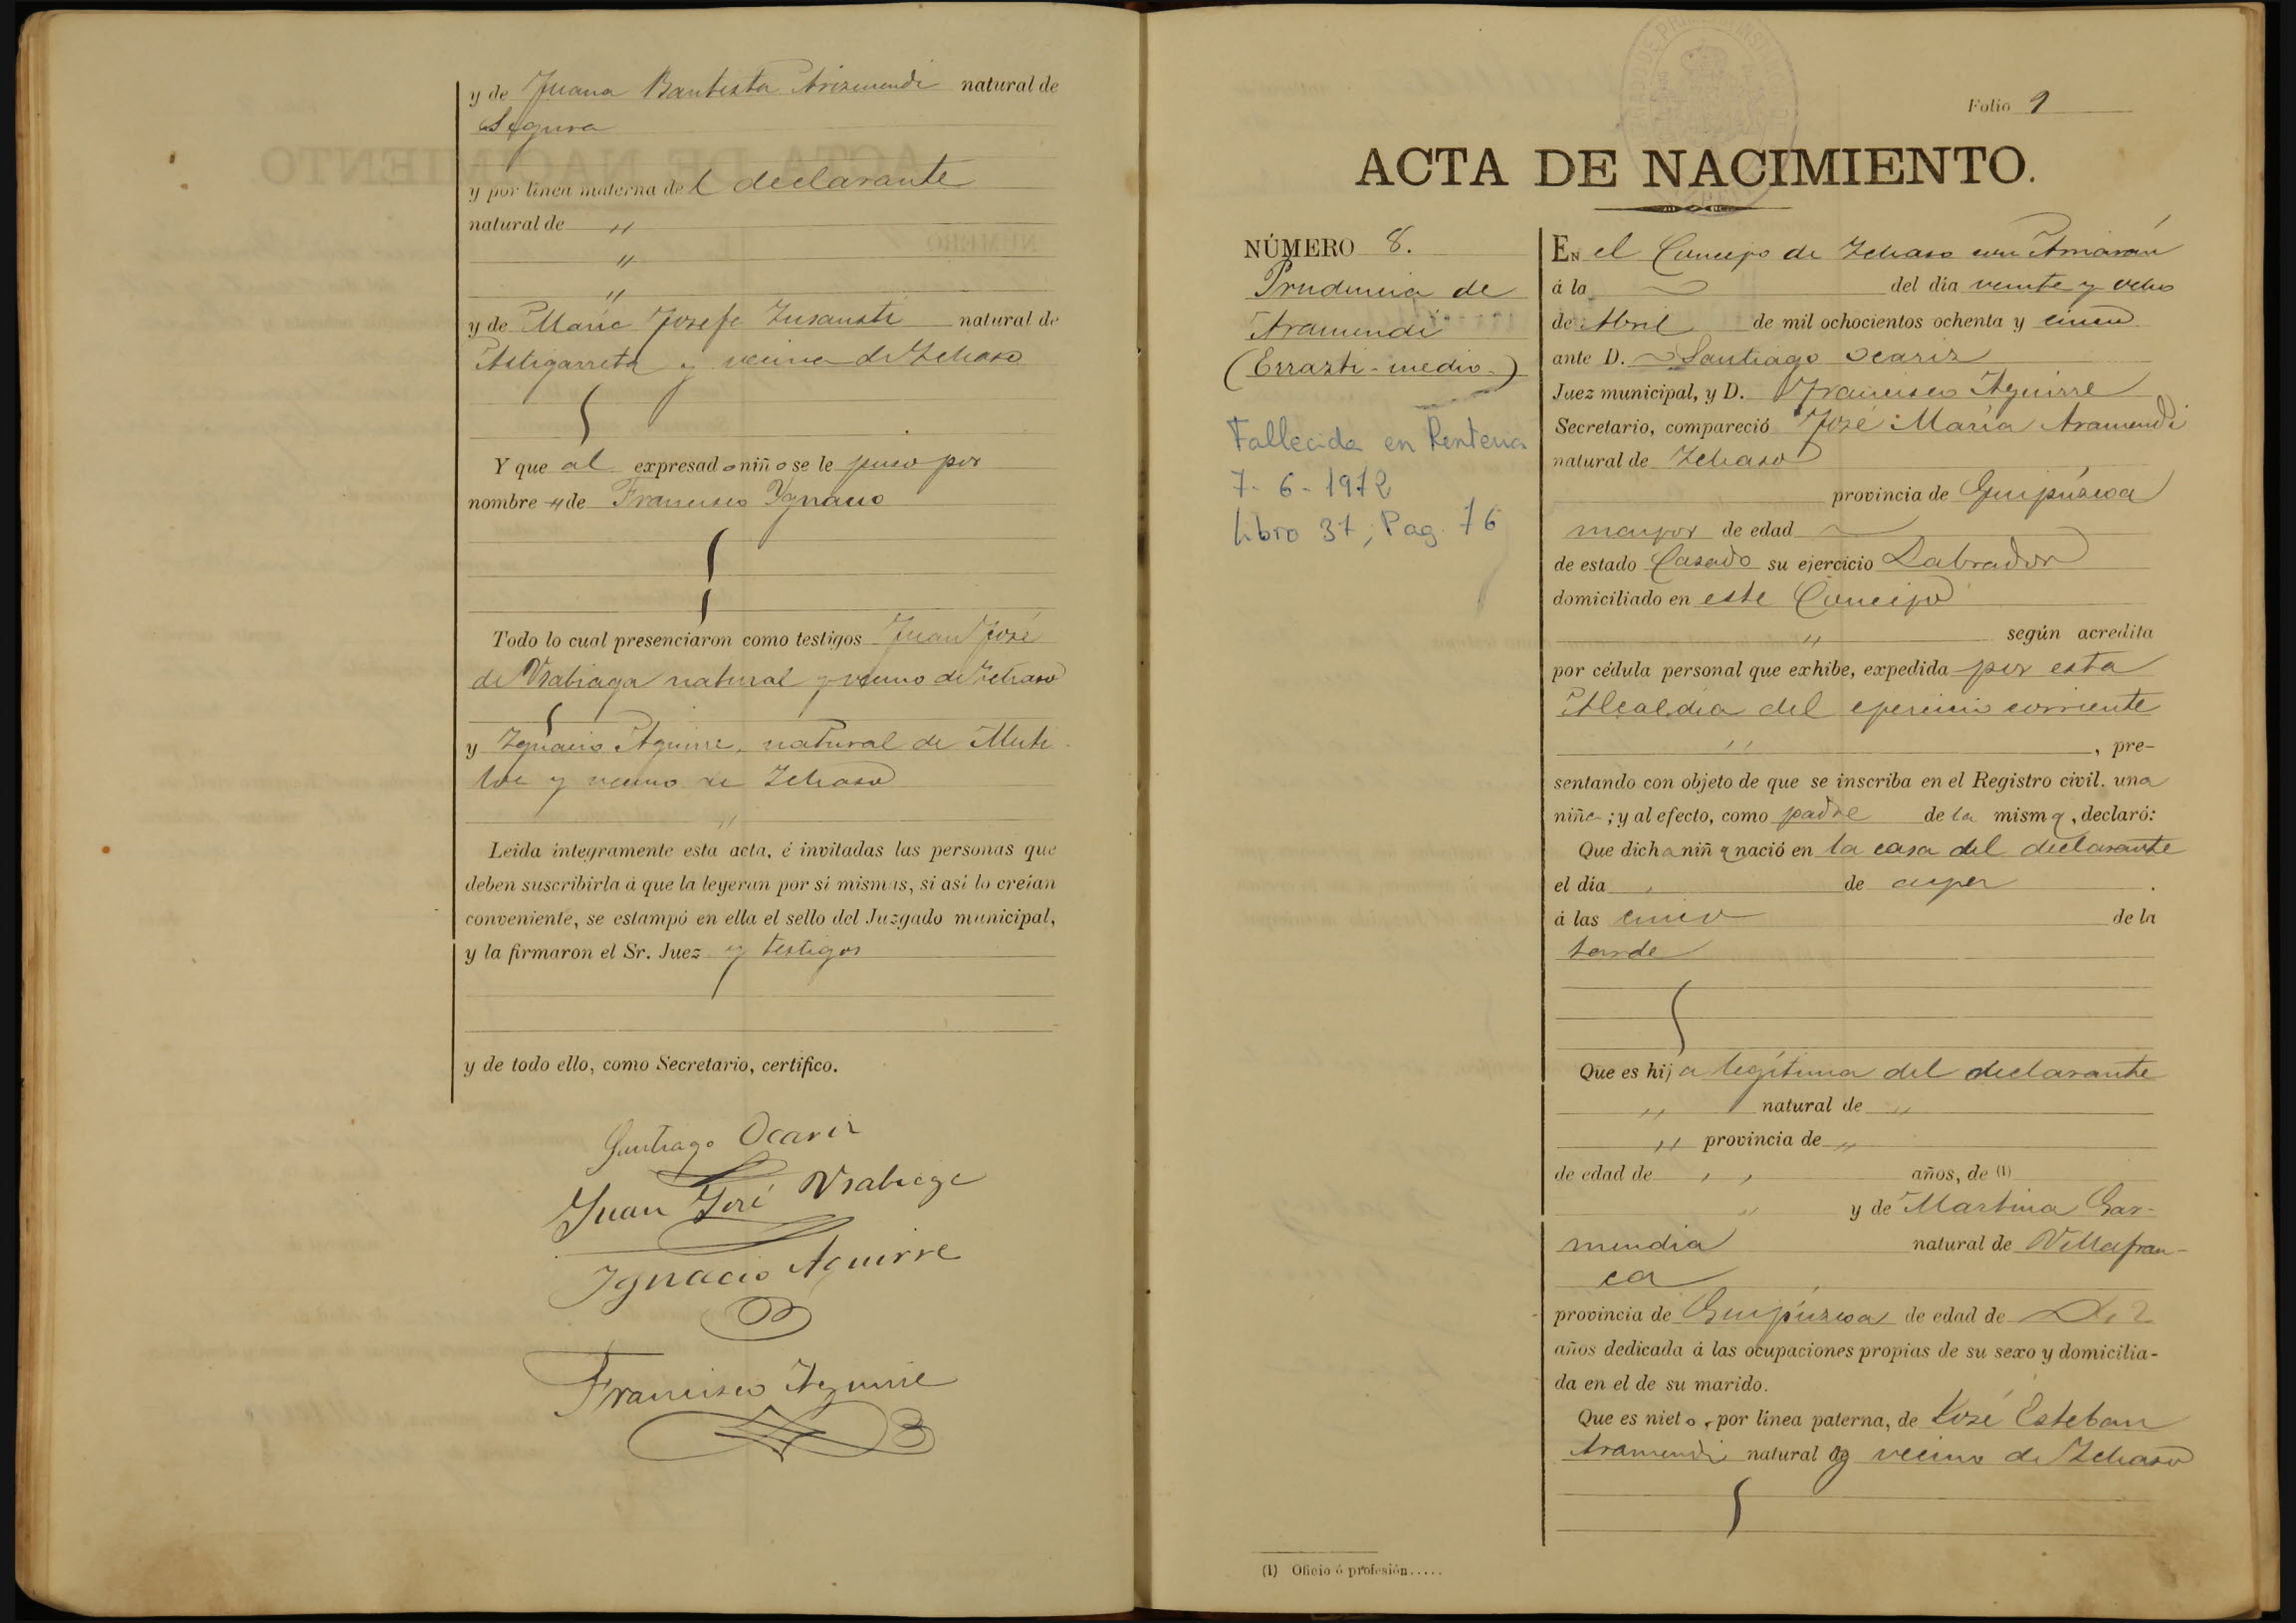 y de Juana Bautista Arizmendi natural de
Segura
y por línea materna del declarante
natural de "
"
"
y de María Josefa Insausti natural de
Astigarreta y vecina de Ichaso
Y que al expresado niño se le puso por
nombre de Francisco Ygnacio
Todo lo cual presenciaron como testigos Juan José
de Usabiaga natural y vecino de Ichaso
y Ignacio Aguirre, natural de Muti
loa y vecino de Ichaso
"
Leida íntegramente esta acta, é invitadas las personas que
deben suscribirla á que la leyeran por sí mismas, si así lo creían
conveniente, se estampó en ella el sello del Juzgado municipal,
y la firmaron el Sr. Juez y testigos
y de todo ello, como Secretario, certifico.
Santiago Ocariz
Juan José Usabiaga
Ignacio Aguirre
Francisco Aguirre
Folio 9
ACTA DE NACIMIENTO.
NÚMERO 8.
Prudencia de
Aramendi
(Errazti-medio.)
Fallecida en Renteria
7-6-1972
Libro 37, Pag. 76
EN el Concejo de Ichaso con Arriarán
á la del dia veinte y ocho
de Abril de mil ochocientos ochenta y cinco
ante D. Santiago Ocariz
Juez municipal, y D. Francisco Aguirre
Secretario, compareció José María Aramendi
natural de Ichaso
provincia de Guipúzcoa
mayor de edad
de estado Casado su ejercicio Labrador
domiciliado en este Concejo
" según acredita
por cédula personal que exhibe, expedida por esta
Alcaldia del ejercicio corriente
" , pre-
sentando con objeto de que se inscriba en el Registro civil. una
niña; y al efecto, como padre de la misma, declaró:
Que dicha niña nació en la casa del declarante
el dia de ayer
á las cinco de la
tarde
Que es hija legítima del declarante
" natural de "
" provincia de "
de edad de " años, de (1)
" y de Martina Gar-
mendia natural de Villafran-
ca
provincia de Guipúzcoa de edad de
años dedicada á las ocupaciones propias de su sexo y domicilia-
da en el de su marido.
Que es nieto, por línea paterna, de José Esteban
Aramendi natural y vecino de Ichaso
(1) Oficio ó profesión.....